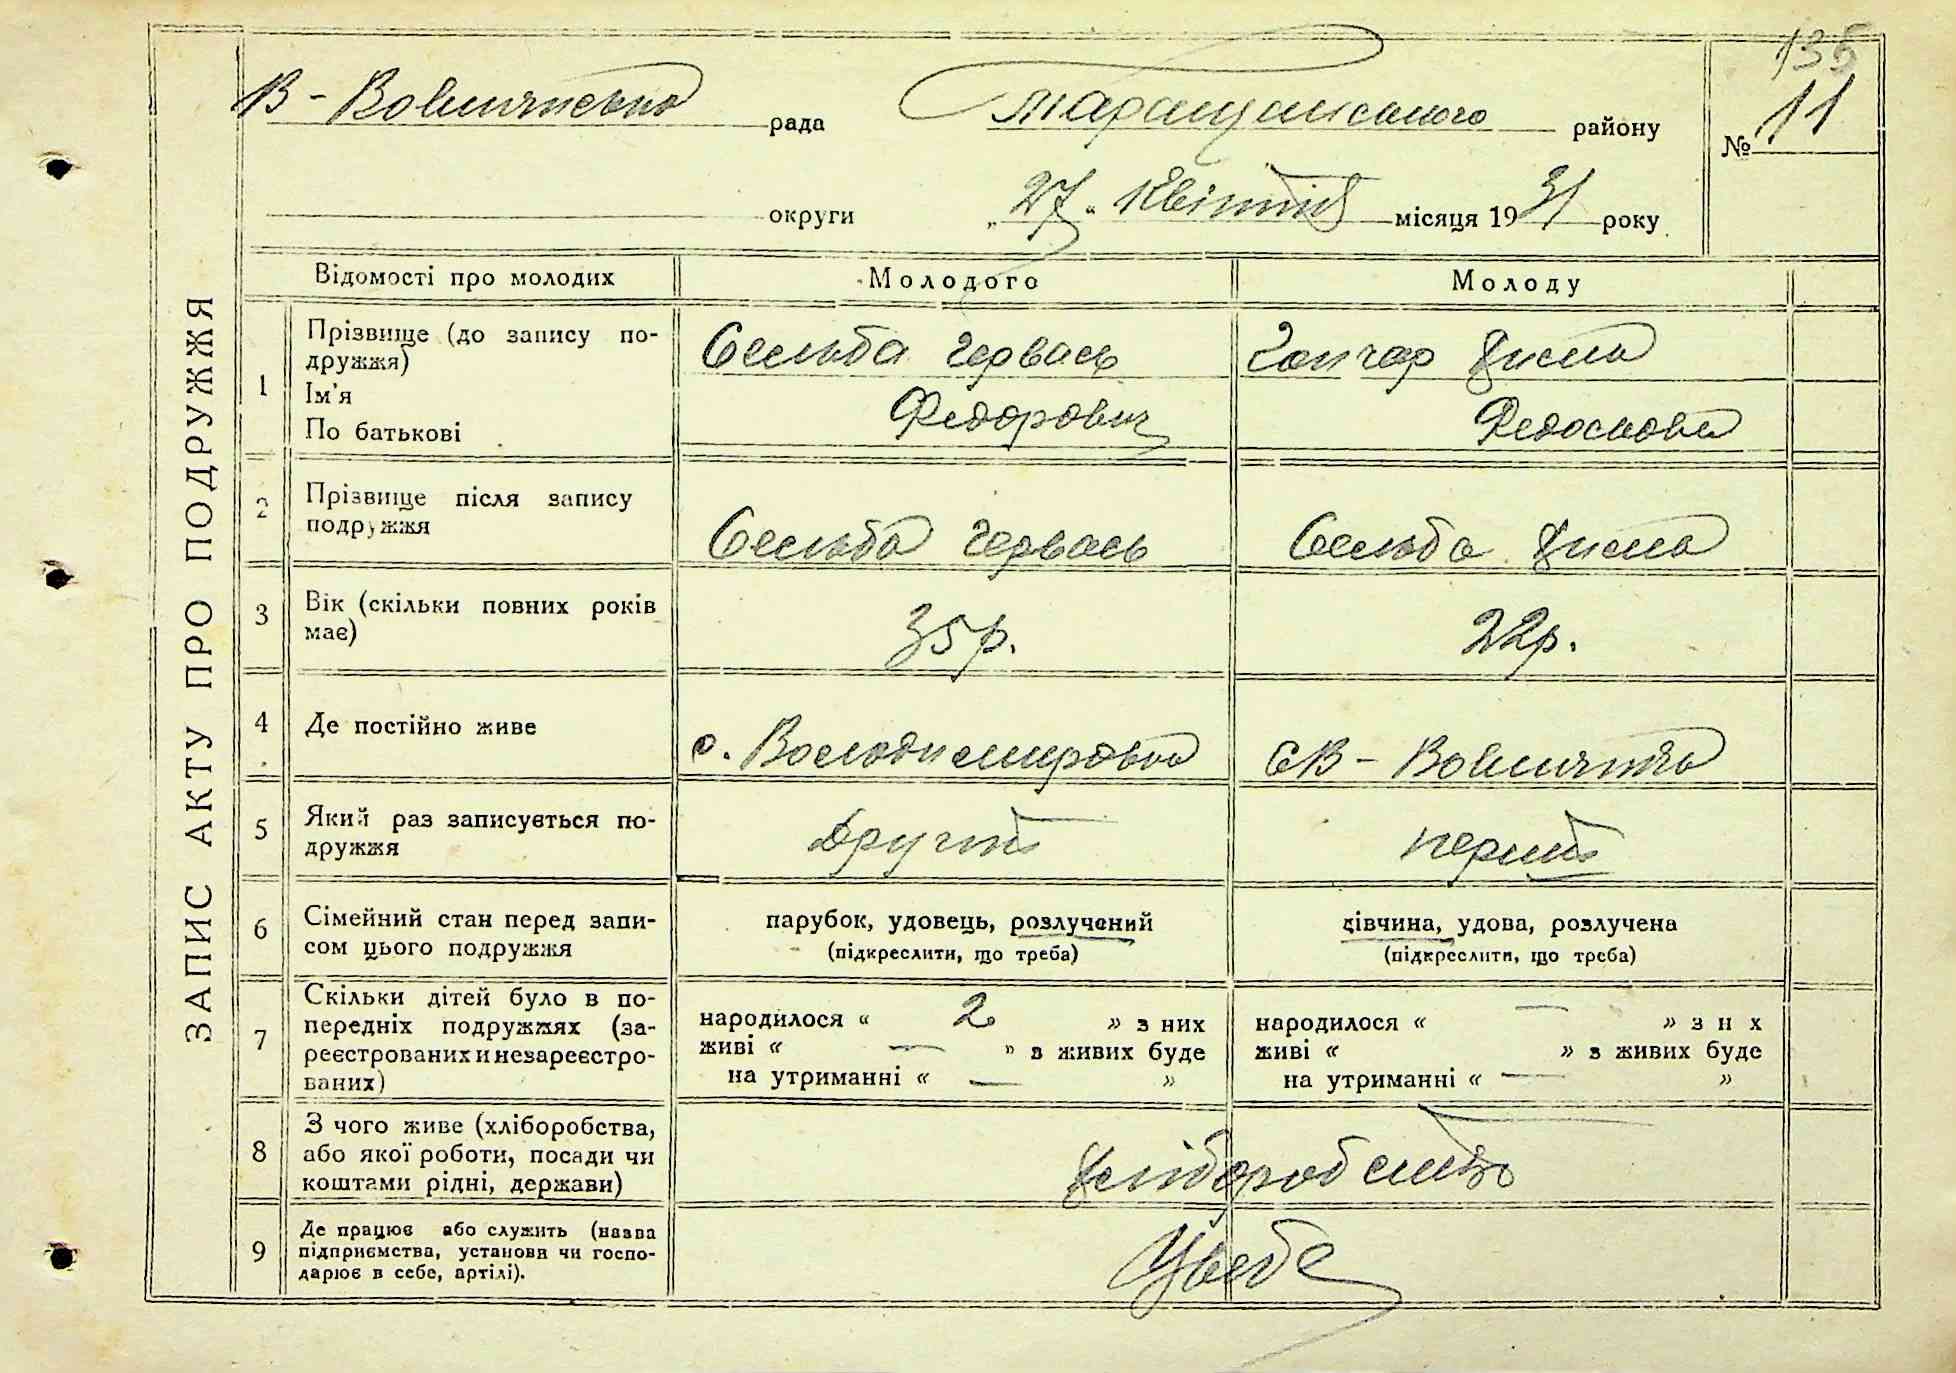 135
В-Вовнянська рада Таращанського району № 11
округи „27“ Квітня місяця 1931 року
ЗАПИС АКТУ ПРО ПОДРУЖЖЯ
Відомості про молодих Молодого Молоду
1 Прізвище (до запису по-
дружжя)
Ім'я
По батькові
Сельба Гервась
Федорович
Гончар
Федосіовна
2 Прізвище після запису
подружжя
Сельба Гервась Сельба
3 Вік (скільки повних років
має)
35р. 22р.
4 Де постійно живе
с. Володимировка с В-Вовнянка
5 Який раз записується по-
дружжя
Другий перший
6 Сімейний стан перед запи-
сом цього подружжя
парубок, удовець, розлучений
(підкреслити, що треба)
дівчина, удова, розлучена
(підкреслити, що треба)
7 Скільки дітей було в по-
передніх подружжях (за-
реєстрованих и незареєстро-
ваних)
народилося « 2 » з них
живі « — » з живих буде
на утриманні « — »
народилося « — » з н х
живі « » з живих буде
на утриманні « — »
8 З чого живе (хліборобства,
або якої роботи, посади чи
коштами рідні, держави)
Хліборобство
9 Де працює або служить (назва
підприємства, установи чи госпо-
дарює в себе, артілі).
У себе